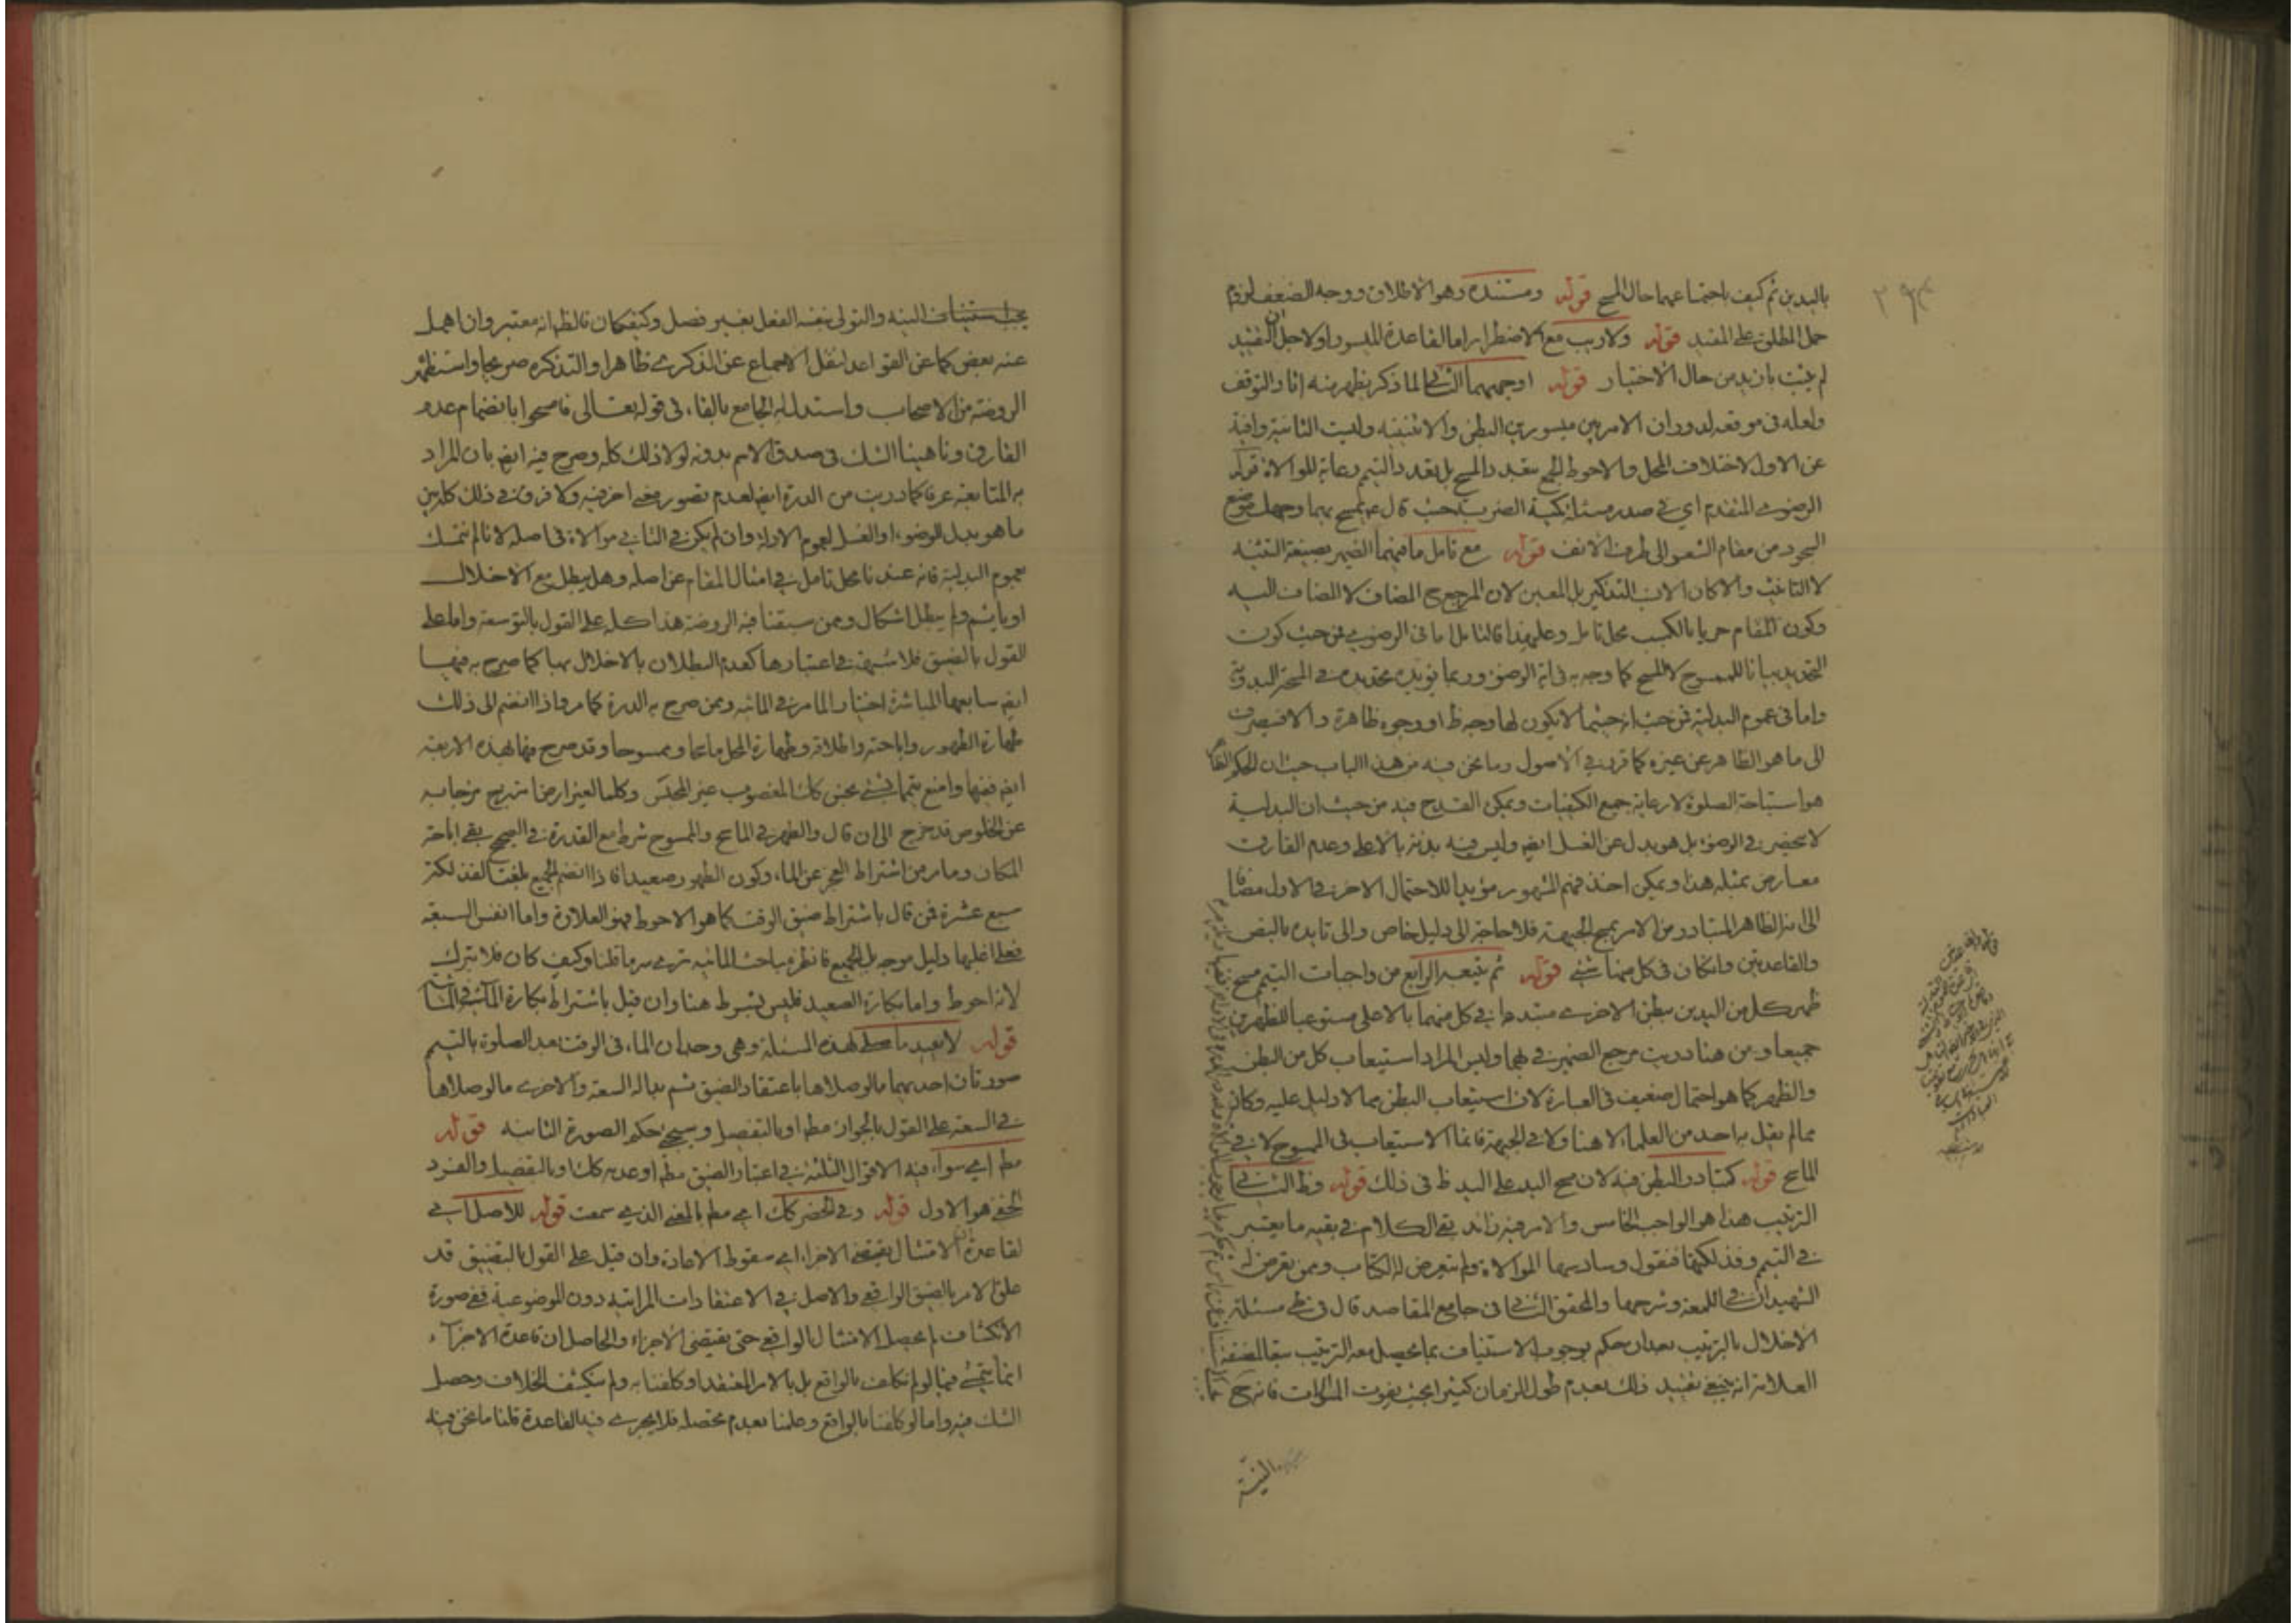 ٢٩٤
باليدين ثم كيف باجتماعهما حال المسح قوله ومستنده وهو الاطلاق ووجه الضعف لزوم
حمل المطلق على المقيد قوله ولا ريب مع الاضطرار اما لقاعدة الميسور او لاجل ان التقييد
لم يثبت بازيد من حال الاختيار قوله اوجههما الثاني لما ذكر يظهر منه اثار التوقف
ولعله في موقعه لدوران الامر بين ميسورين البطن والاثنينيه وليست الثانية وافية
عن الاول لاختلاف المحل والاحوط الجمع بتعدد المسح بل بتعدد التيمم رعاية للموالاة قوله
الرضوي المتقدم اي في صدر مسئلة كيفية الضرب حيث قال ثم تمسح بهما وجهك موضع
السجود من مقام الشعر الى طرف الانف قوله مع تامل ما فيهما الضمير بصيغة التثنيه
لا التانيث والا كان الانسب التذكير بل المعين لان المرجع ح المضاف لا المضاف اليه
وكون المقام حريا بالكسب محل تامل وعليهذا فالتامل اما في الرضوي فمن حيث كون
التحديد بيانا للممسوح لا المسح كما وجه به في اية الوضوء وربما يؤيده تحديده في المسح باليد
واما في عموم البدلية فمن حيث انه حيثما لا يكون لها وجه ظ او وجوه ظاهرة والا فينصرف
الى ما هو الظاهر عن غيره كما قرر في الاصول وما نحن فيه من هذا الباب حيث ان الحكم الظاهر
هو استباحة الصلوة لا رعاية جميع الكيفيات ويمكن القدح فيه من حيث ان البدلية
لا ينحصر في الوضوء بل هو بدل عن الغسل ايض وليس فيه بدئة بالاعلى وعدم الفارق
معارض بمثله هذا ويمكن اخذ فهم المشهور مؤيدا للاحتمال الاخر في الاول مضافا
الى انه الظاهر المتبادر من الامر بمسح الجبهة فلا حاجة الى دليل خاص والى تاييده بالنص
والقاعدتين وان كان في كل منهما شئ قوله ثم يتبعه الرابع من واجبات التيمم مسح
ظهر كل من اليدين ببطن الاخرى مبتدءا في كل منهما بالاعلى مستوعبا للظهرين
جميعا ومن هنا دريت مرجع الضمير في بهما وليس المراد استيعاب كل من البطن
والظهر كما هو احتمال ضعيف في العبارة لان استيعاب البطن مما لا دليل عليه وكان
مما لم يقل به احد من العلماء لا هنا ولا في الجبهة فانما الاستيعاب في الممسوح لا في
الماسح قوله كتبادر البطن فيه لان مسح اليد على اليد ظ في ذلك قوله وظ الثاني
الترتيب هذا هو الواجب الخامس والامر فيه زائد بقي الكلام في بقيه ما يعتبر
في التيمم وفذلكتها فنقول وسادسها الموالاة ولم يتعرض له الكتاب وممن تعرض له
الشهيدان في اللمعة وشرحها والمحقق الثاني في جامع المقاصد قال في مسئلة
الاخلال بالترتيب بعد ان حكم بوجوب الاستيناف بما يحصل معه الترتيب تبعا لمصنفه
العلامة انه ينبغي تقييد ذلك بعدم طول الزمان كثيرا بحيث يفوت الموالات فانه ح
النية
يجب استيناف النيه والتولى بنفسه الفعل بغير فصل وكيفكان فالظ انه معتبر وان اهمل
عنه بعض كما عن القواعد لنقل الاجماع عن الذكرى ظاهرا والتذكرة صريحا واستظهر
الروضة من الاصحاب واستدل له الجامع بالفاء في قوله تعالى فامسحوا بانضمام عدم
الفارق وناهينا الشك في صدق الاسم بدونه لولا ذلك كله وصرح فيه ايض بان المراد
به المتابعة عرفا كما دريت من الدرة ايض لعدم تصور معنى اخر فيه ولا فرق في ذلك كله بين
ما هو بدل الوضوء او الغسل لعموم الادلة وان لم يكن في الثاني موالاة في اصله لانا لم نتمسك
بعموم البدلية فانه عندنا محل تامل في امثال المقام عن اصله وهل يبطل مع الاخلال
او ياثم ولم يبطل اشكال وممن سبقنا فيه الروضة هذا كله على القول بالتوسعة واما على
القول بالضيق فلا شبهة في اعتبارها كعدم البطلان بالاخلال بها كما صرح به فيها
ايض سابعها المباشرة اختيارا لما مر في المائيه وممن صرح به الدرة كما مر فاذا انضم الى ذلك
طهارة الطهور واباحته واطلاقه وطهارة المحل ماسحا وممسوحا وقد صرح فيها بهذه الاربعة
ايض ففيها وامنع تيمما بشئ نجس كذا المغصوب غير المحتبس وكلما لغير ارض ما نتج مزجا به
عن الخلوص قد خرج الى ان قال والطهر في الماسح والممسوح شرط مع القدرة في الصحيح بقي اباحة
المكان وما مر من اشتراط العجز عن الماء وكون الطهور صعيدا فاذا انضم الجميع بلغت الفذلكة
سبع عشرة فمن قال باشتراط ضيق الوقت كما هو الاحوط فهو العلاوة واما انفس السبعة
فعلى اغلبها دليل موجه بل الجميع فانظره مباحث المائيه ترى سر ما قلنا وكيف كان فلا تترك
لانه احوط واما بكارة الصعيد فليس بشرط هنا وان قيل باشتراط بكارة الماء في المائية
قوله لا يعيد ما صلى لهذه المسئلة وهي وجدان الماء في الوقت بعد الصلوة بالتيمم
صورتان احديهما ما لو صلاها باعتقاد الضيق ثم بدا له السعة والاخرى ما لو صلاها
في السعة على القول بالجواز مطم او بالتفصيل وسيجئ حكم الصورة الثانيه قوله
مطم اي سواء فيه الاقوال الثلثة في اعتبار الضيق مطم او عدمه كك او بالتفصيل والفرد
الخفي هو الاول قوله وفي الحضر كك اي مطم بالمعنى الذي سمعت قوله للاصل اي
لقاعدة ان الامتثال يقتضي الاجزاء اي سقوط الاعادة وان قيل على القول بالتضييق قد
علق الامر بالضيق الواقعي والاصل في الاعتقادات المراتيه دون الموضوعية ففي صورة
الانكشاف لم يحصل الامتثال الواقعي حتى يقتضي الاجزاء والحاصل ان قاعدة الاجزاء
انما يتجئ فيما لو لم نكلف بالواقع بل بالامر المعتقد او كلفنا به ولم ينكشف الخلاف وحصل
الشك فيه واما لو كلفنا بالواقع وعلمنا بعدم تحصله فلا يجرى فيه القاعدة قلنا ما نحن فيه